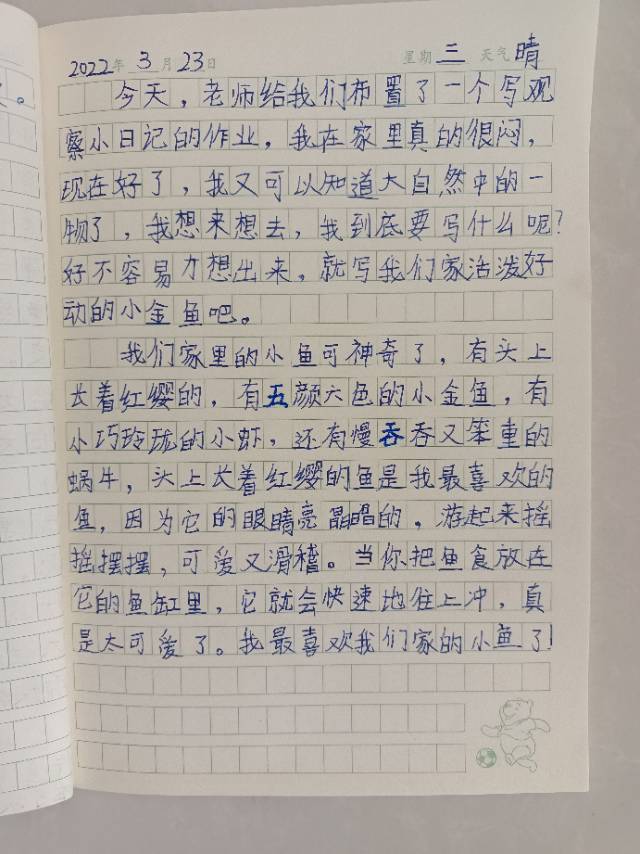 2022年 3月 23日 星期 三 天气 晴
今天，老师给我们布置了一个写观
察小日记的作业，我在家里真的很闷，
现在好了，我又可以知道大自然中的一
物了，我想来想去，我到底要写什么呢？
好不容易才想出来，就写我们家活泼好
动的小金鱼吧。
我们家里的小鱼可神奇了，有头上
长着红缨的，有五颜六色的小金鱼，有
小巧玲珑的小虾，还有慢吞吞又笨重的
蜗牛，头上长着红缨的鱼是我最喜欢的
鱼，因为它的眼睛亮晶晶的，游起来摇
摇摆摆，可爱又滑稽。当你把鱼食放在
它的鱼缸里，它就会快速地往上冲，真
是太可爱了。我最喜欢我们家的小鱼了！